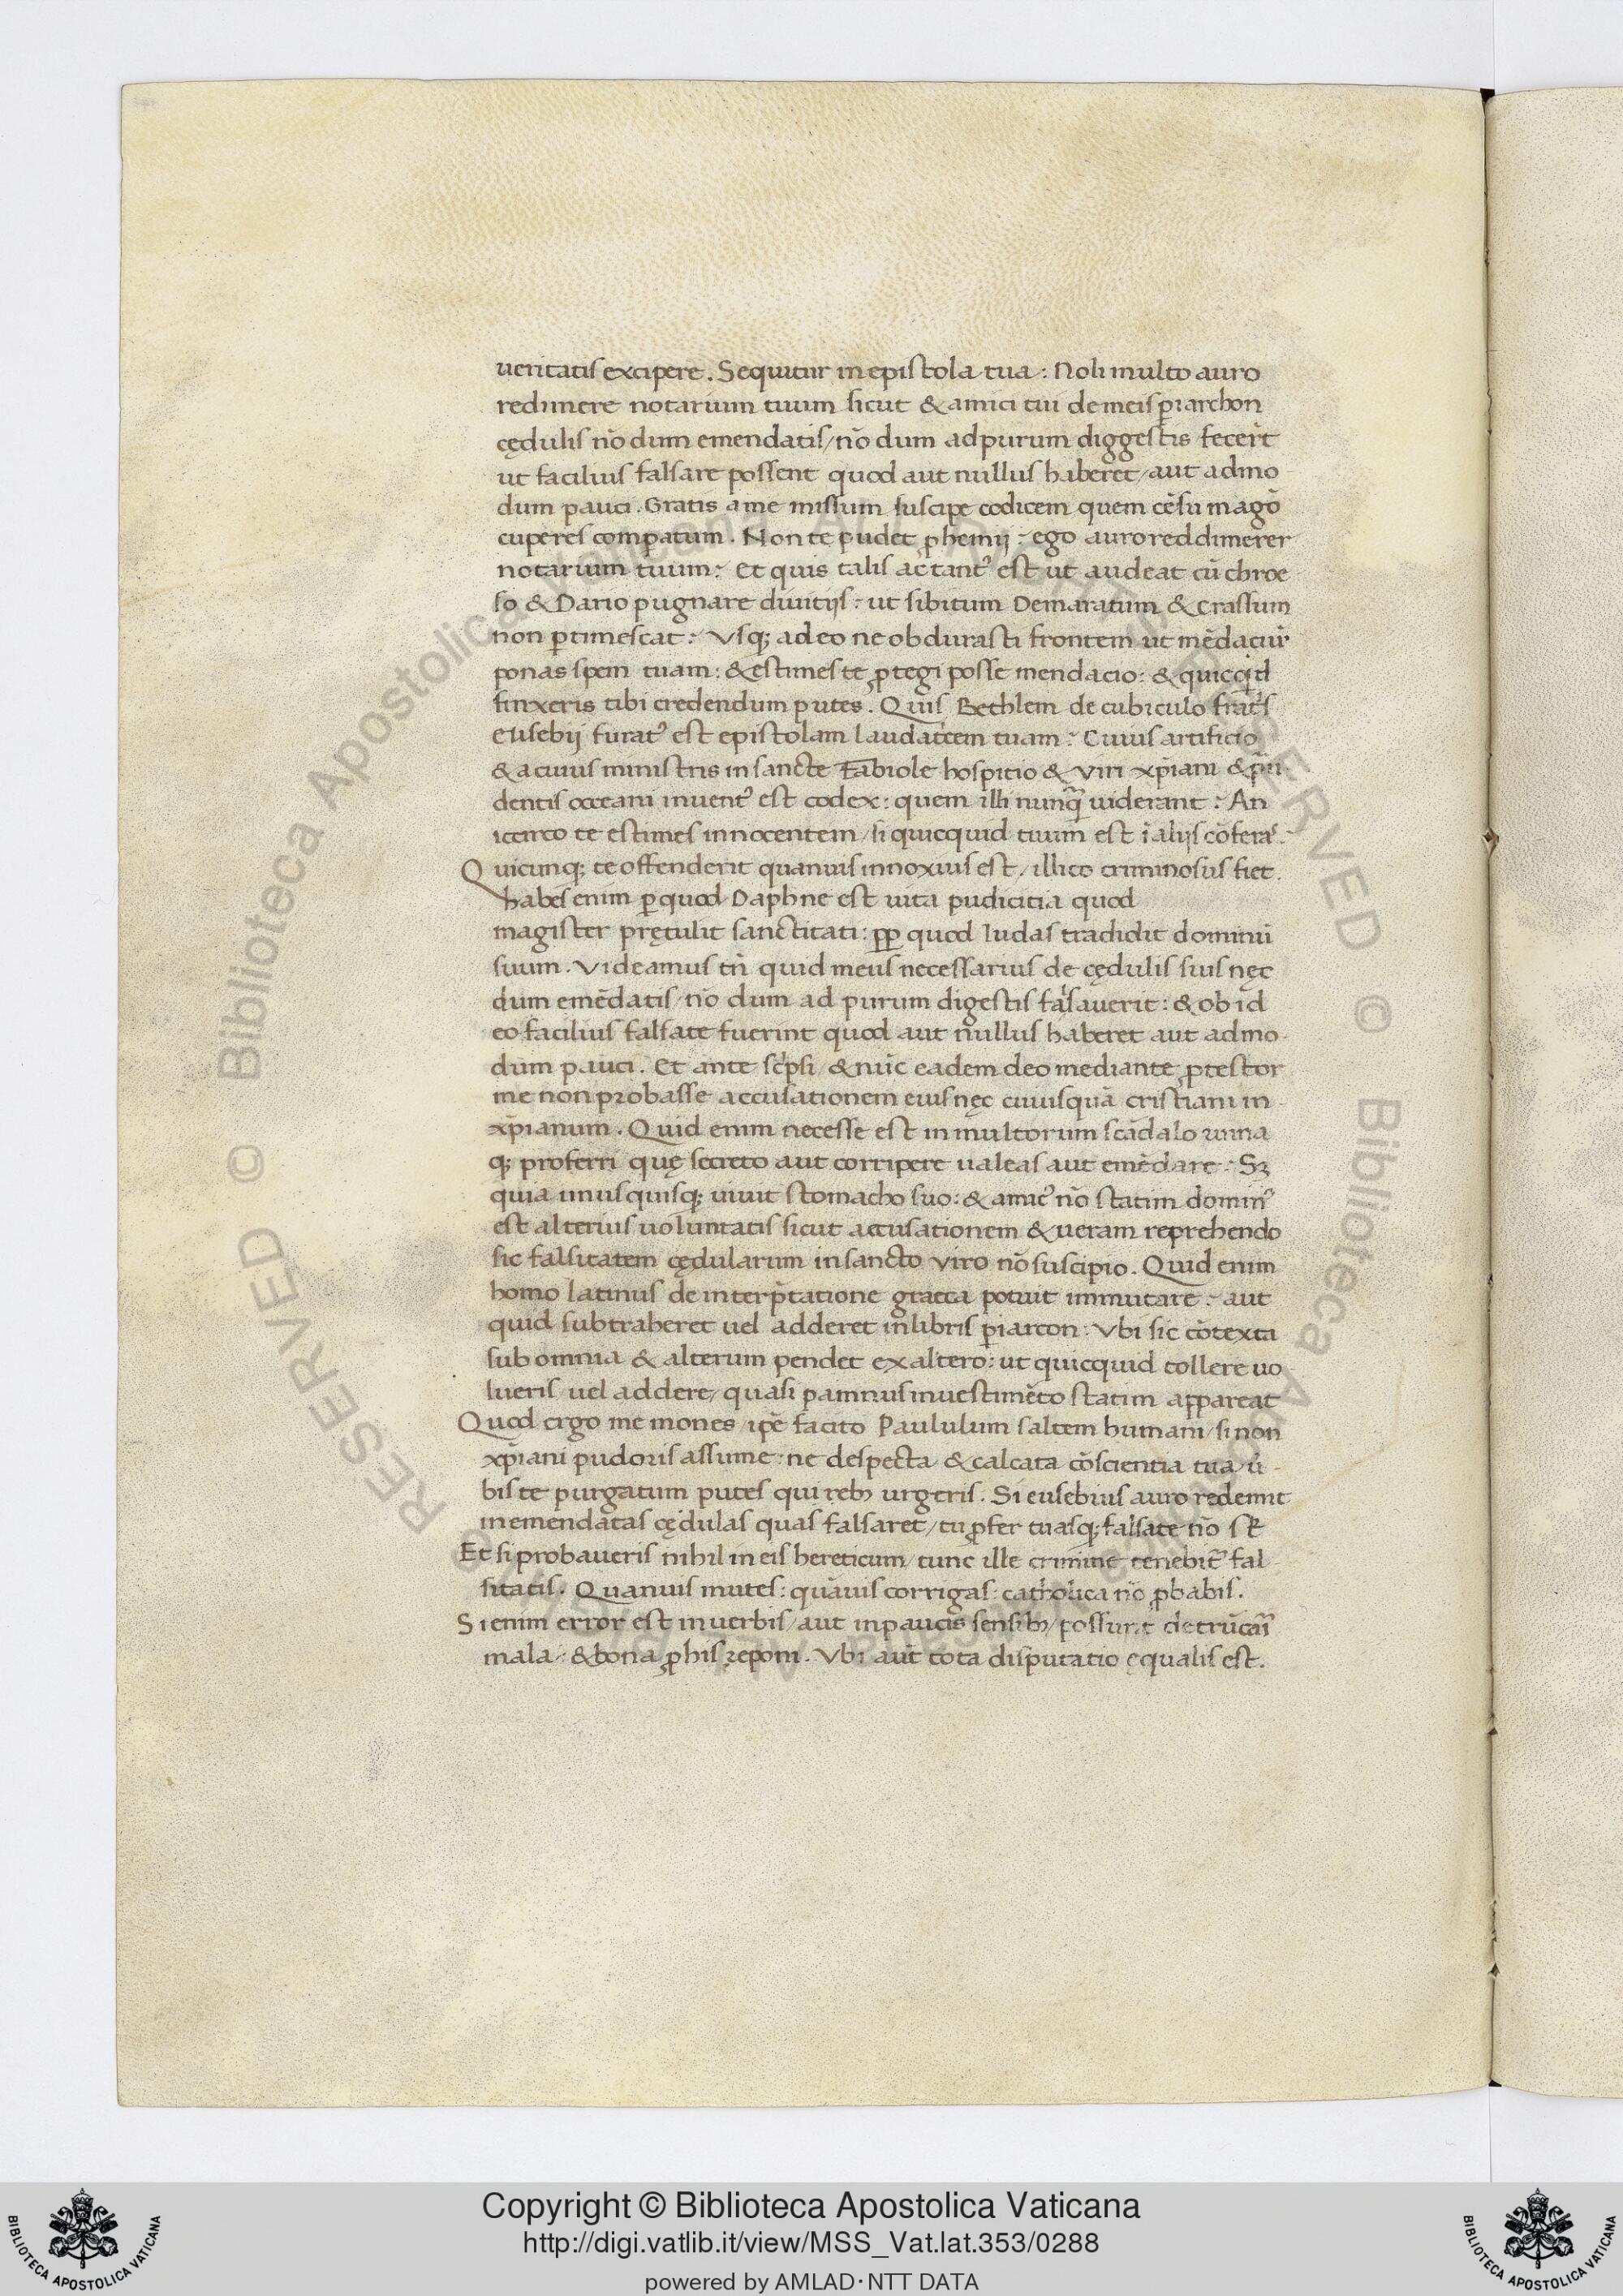 ueritatis excipere. Sequitur in epistola tua: Noli multo auro
redimere notarium tuum sicut & amici tui de meis p̲iarchon
cędulis nō dum emendatis/ nō dum ad purum diggestis fecer̄t
ut facilius falsare possent quod aut nullus haberet/ aut admo
dum pauci. Gratis a me missum suscipe codicem quem cēsu magō
cuperes comp̲atum. Non te pudet p̲hemij: ego auro reddimerer
notarium tuum: Et quis talis ac tantꝰ est ut audeat cū chroe
so & Dario pugnare diuitijs: ut sibitum Demaratum & Crassum
non p̲timescat: Vsq; adeo ne obdurasti frontem ut mēdaciū
ponas spem tuam: & estimes te ꝓtegi posse mendacio: & quicqd
finxeris tibi credendum putes. Quis Bethlem de cubiculo fratris
eusebij furatꝰ est epistolam laudatcem tuam: Cuius artificio
& a cuius ministris in sancte Fabiole hospitio & viri xp̄iani & pru
dentis occeani inuentꝰ est codex: quem illi nunq̄ uiderant: An
icerco te estimes innocentem/ si quicquid tuum est ī alijs cōferas
Quicunq; te offenderit quanuis innoxius est/ illico criminosus fiet.
habes enim p̲ quod Daphne est uita pudicitia quod
magister prętulit sanctitati: pp̲ quod Iudas tradidit dominū
suum. Videamus tn̄ quid meus necessarius de cędulis suis nęc
dum emēdatis/ nō dum ad purum digestis falsauerit: & ob id
eo facilius falsate fuerint quod aut nullus haberet aut admo
dum pauci. Et ante scripsi/ & nūc eadem deo mediante ꝓtestor
me non probasse accusationem eius nęc cuiusquā cristiani in
xp̄ianum. Quid enim necesse est in multorum scādalo ruina
q; proferri quę secreto aut corripere ualeas aut emēdare: Sꝫ
quia unusquisq; uiuit stomacho suo: & amicꝰ nō statim dominꝰ
est alterius uoluntatis sicut accusationem & ueram reprehendo
sic falsitatem cędularum in sancto viro nō suscipio. Quid enim
homo latinus de interp̄tatione graeca potuit immutare: aut
quid subtraheret uel adderet in libris p̲iarcon: Vbi sic cōtexta
sub omnia & alterum pendet ex altero: ut quicquid tollere uo
lueris/ uel addere/ quasi pannus in uestimēto statim appareat
Quod ergo me mones/ ipē facito Paululum saltem humani/ si non
xp̄iani pudoris assume: ne despecta & calcata cōscientia tua/ ū
bis te purgatum putes qui reb; urgeris. Si eusebius auro redemit
inemendatas cędulas quas falsaret/ tu ꝓfer tuasq; falsate nō st̄
Et si probaueris nihil in eis hereticum/ tunc ille crimine tenebitꝰ fal
sitatis. Quanuis mutes: quāuis corrigas: catholica nō ꝓbabis.
Si enim error est in uerbis/ aut in paucis sensib;/ possunt detrūcari
mala: & bona ꝓ his reponi. Vbi aut̄ tota disputatio ęqualis est.
© Biblioteca Apostolica Vaticana ALL RIGHTS RESERVED
Copyright © Biblioteca Apostolica Vaticana
http://digi.vatlib.it/view/MSS_Vat.lat.353/0288
powered by AMLAD·NTT DATA
BIBLIOTECA APOSTOLICA VATICANA
BIBLIOTECA APOSTOLICA VATICANA